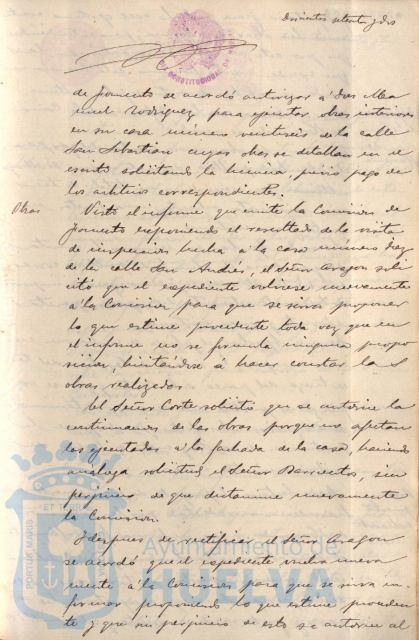 Doscientos setenta y dos
CONSTITUCIONAL DE
de fomento se acordó autorizar a Don Ma
nuel Rodriguez para ejecutar obras interiores
en su casa número veintiseis de la calle
San Sebastian cuyas obras se detallan en el
escrito solicitando la licencia, previo pago de
los arbitrios correspondientes.
Obras
Visto el informe que emite la Comision de
Fomento exponiendo el resultado de la visita
de inspeccion hecha á la casa número diez
de la calle San Andrés, el Señor Aragon soli
citó que el expediente volviese nuevamente
a la Comision para que se sirva proponer
lo que estime procedente toda vez que en
el informe no se formula ninguna propo
sicion, limitándose á hacer constar las
obras realizadas.
El Señor Corte solicitó que se autorice la
continuacion de las obras porque no afectan
las ejecutadas a la fachada de la casa, haciendo
análoga solicitud el Señor Barrientos, sin
perjuicio de que dictamine nuevamente
la Comision.
Y despues de rectificar el Señor Aragon
se acordó que el expediente vuelva nueva
mente á la Comision para que se sirva in-
formar proponiendo lo que estime proceden
te y que sin perjuicio de esto se autorice al
PORTUS MARIS ET
Ayuntamiento de
HUELVA